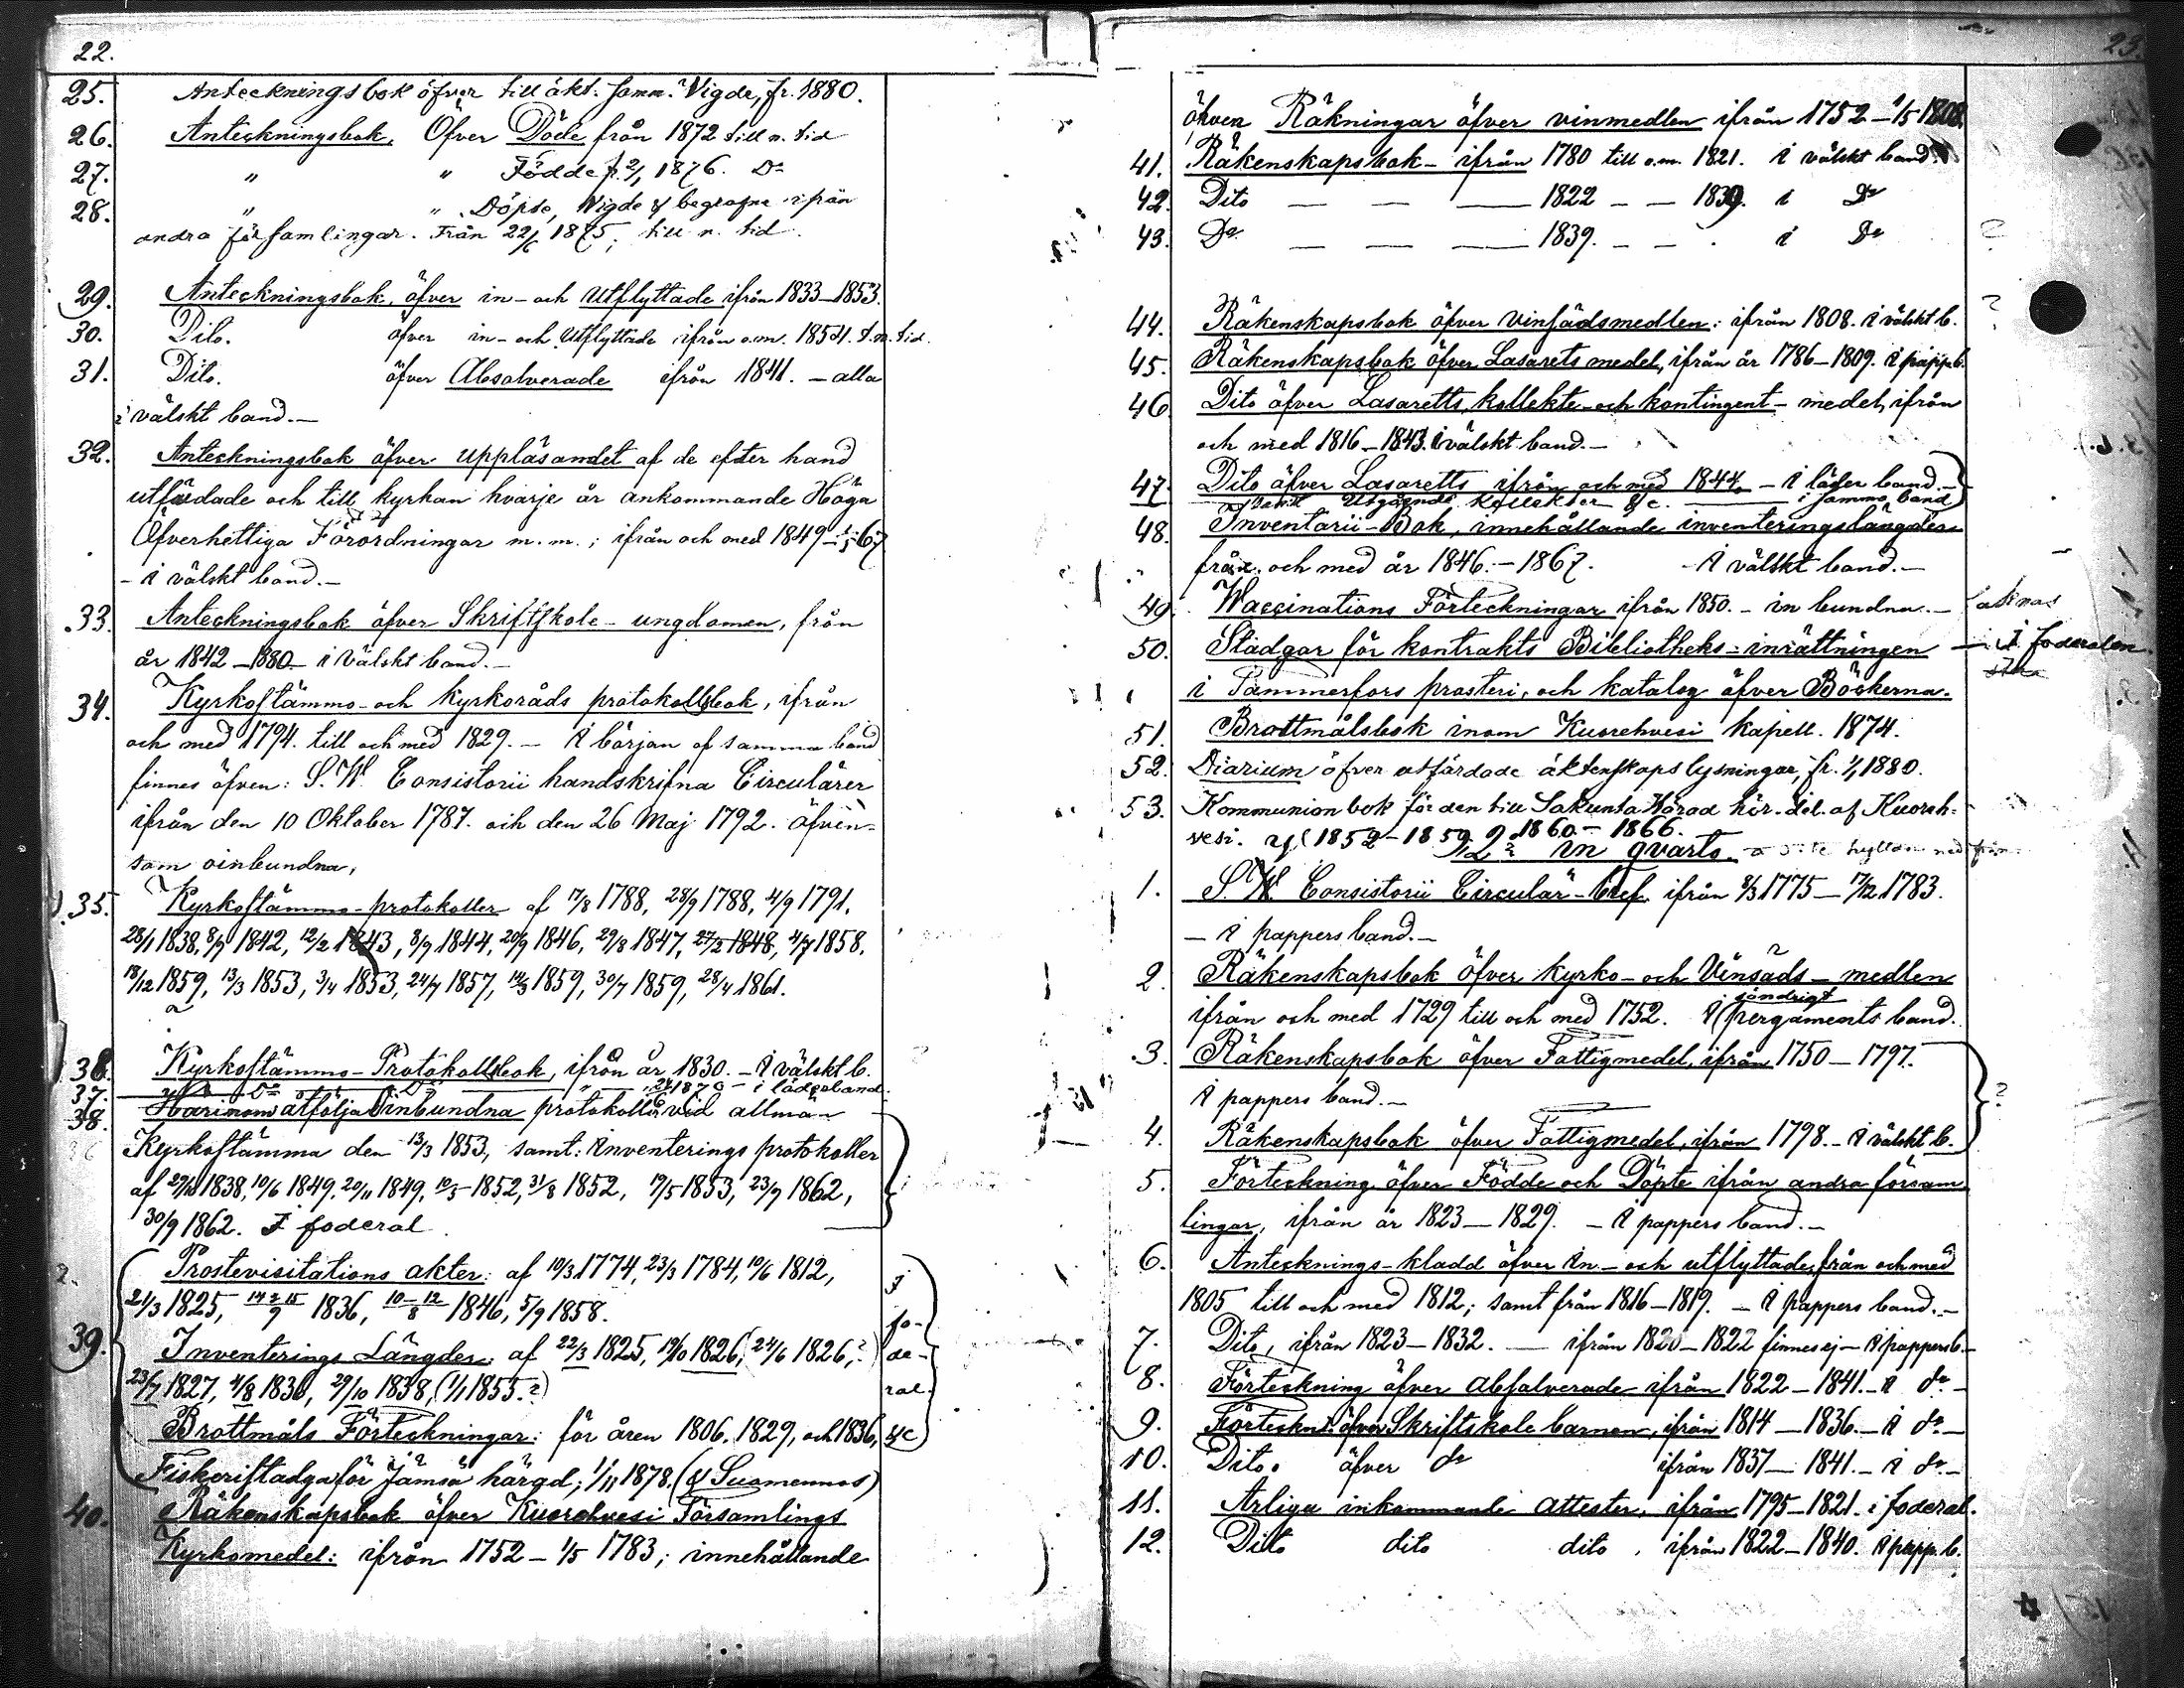 22.
25. Anteckningsbok öfver till äkt. samm. Vigde, fr. 1880.
26. Anteckningsbok, Öfver Döde från 1872 till n. tid
27. " " Födde fr. 2/1 1876. Do
28. " " Döpte, Vigde & begrafne ifrån
andra församlingar. Från 22/6 1875, till n. tid.
29. Anteckningsbok, öfver in- och Utflyttade ifrån 1833-1853.
30. Dito. öfver in- och Utflyttade ifrån o.m. 1854. t.n. tid.
31. Dito. öfver Absolverade ifrån 1841. - alla
i välskt band.-
32. Anteckningsbok öfver uppläsandet af de efter hand
utfärdade och till kyrkan hvarje år ankommande Höga
Öfverhettiga Förordningar m.m.; ifrån och med 1849-67
- i välskt band.-
33. Anteckningsbok öfver Skriftskole-ungdomen, från
år 1842-1880- i välskt band.-
34. Kyrkostämmo-och kyrkoråds protokollsbok, ifrån
och med 1794. till och med 1829. - I början af samma band
finnes öfven: S. W. Consistorii handskrifna Circulärer
ifrån den 10 Oktober 1787. och den 26 Maj 1792. öfven-
som oinbundna,
35. Kyrkostämmo-protokoller af 17/8 1788, 28/9 1788, 4/9 1791.
28/1 1838, 8/9 1842, 12/2 1843, 8/9 1844, 20/9 1846, 29/8 1847, 27/2 1848, 4/7 1858.
18/12 1859, 13/3 1853, 3/4 1853, 24/7 1857, 1859, 30/7 1859, 28/4 1861.
36. Kyrkostämmo-Protokollsbok, ifrån år 1830. - I välskt b.
37. Do Do 1870 - i läderband.
38. Härinom åtfölja oinbundna protokoller vid allmän
Kyrkostämma den 13/3 1853, samt: Inventerings protokoller
af 1838, 10/6 1849, 20/11 1849, 1852, 31/8 1852, 17/5 1853, 23/9 1862,
30/9 1862. I foderal
Prostevisitations akter: af 10/3 1774, 23/3 1784, 19/6 1812,
21/3 1825, 14 & 15/9 1836, 10-12/8 1846, 5/9 1858.
39. Inventerings Längder: af 22/3 1825, 19/10 1826, (24/6 1826,?)
23/7 1827, 4/8 1836, 29/10 1838, (1/1 1855.?)
Brottmåls Förteckningar: för åren 1806, 1829, och 1836, &c
i fo-
de-
ral.
Fiskeristadga för Jämsä härad; 1/11 1878. (& Suomennos)
40. Räkenskapsbok öfver Kuorehvesi Församlings
Kyrkomedel: ifrån 1752 - 1/5 1783; innehållande
23.
öfven Räkningar öfver vinmedlen ifrån 1752 - 1/5 1808.
41. Räkenskapsbok- ifrån 1780 till o.m. 1821. i välskt band.
42. Dito — — — 1822 - - 1839. i Do
43. Do — — — 1839. - - . i Do
44. Räkenskapsbok öfver vinsädsmedlen: ifrån 1808. i välskt b.
45. Räkenskapsbok öfver Lasarets medel, ifrån år 1786-1809. i papp b.
46. Dito öfver Lasaretts, kollekte-och kontingent-medel, ifrån
och med 1816-1843. i välskt band.-
47. Dito öfver Lasaretts ifrån och med 1844. - i läder band.-
samt Utgående Kollekter &c. — i samma band
48. Inventarii-Bok, innehållande inventeringslängder
från och med år 1846.-1867. - I välskt band.-
49. Waccinations Förteckningar ifrån 1850. - in bundna.- saknas
50. Stadgar för kontrakts Bibliotheks-inrättningen — i foderalen.
i Tammerfors prosteri, och katalog öfver Böckerna.
51. Brottmålsbok inom Kuorehvesi kapell. 1874.
52. Diarium öfver utfärdade äktenskapslysningar, fr. 1/1 1880.
53. Kommunion bok för den till Sakunta Härad hör. del. af Kuoreh-
vesi. af 1852-1859 & 1860-1866.
in qvarto.
1. S. W. Consistorii Circulär-bref. ifrån 8/3 1775 - 17/12 1783.
- I pappers band.-
2. Räkenskapsbok öfver kyrko-och Vinsäds-medlen
ifrån och med 1729 till och med 1752. I (söndrigt pergaments band.
3. Räkenskapsbok öfver Fattigmedel, ifrån 1750-1797.
I pappers band.-
?
4. Räkenskapsbok öfver Fattigmedel, ifrån 1798. - I välskt b.
5. Förteckning öfver Födde och Döpte ifrån andra försam-
lingar, ifrån år 1823-1829. - I pappers band.-
6. Antecknings-kladd öfver In-och utflyttade, från och med
1805 till och med 1812; samt från 1816-1819. - I pappers band.-
7. Dito, ifrån 1823-1832. — ifrån 1820-1822 finnes ej - I pappers b.-
8. Förteckning öfver absolverade ifrån 1822-1841.- I do.-
9. Förteckn: öfver Skriftskole barnen, ifrån 1814-1836. - I do.-
10. Dito. öfver do ifrån 1837-1841. - I do.-
11. Årliga inkommande attester, ifrån 1795-1821. i foderal.
12. Dito dito dito, ifrån 1822-1840. I papp. b.